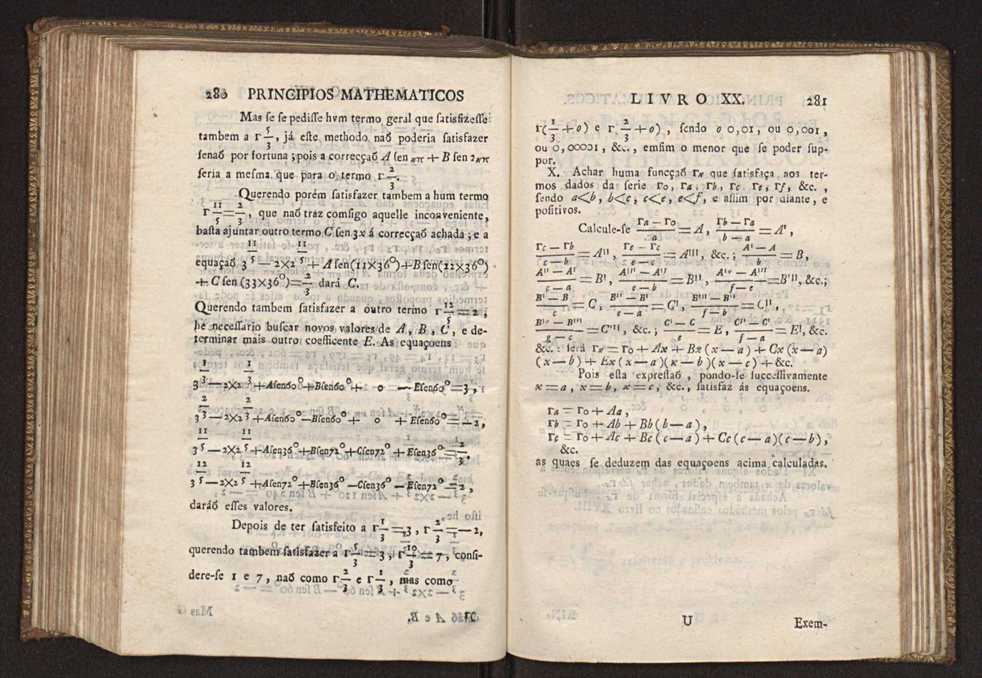 280 PRINCIPIOS MATHEMATICOS
Mas se se pedisse hvm termo geral que satisfizesse
tambem a Γ 5/3, já este methodo naõ poderia satisfazer
senaõ por fortuna ; pois a correcçaõ A sen nπ + B sen 2nπ
seria a mesma que para o termo Γ 2/3.
Querendo porém satisfazer tambem a hum termo
Γ 11/5 = 2/3, que naõ traz comsigo aquelle inconveniente,
basta ajuntar outro termo C sen 3x á correcçaõ achada ; e a
equaçaõ 3^11/5 — 2×2^11/5 + A sen(11×36°)+B sen(22×36°)
+ C sen (33×36°) = 2/3 dará C.
Querendo tambem satisfazer a outro termo Γ 12/5 = 2 ,
he necessario buscar novos valores de A, B, C, e de-
terminar mais outro coefficente E. As equaçoens
3^1/3 — 2×2^1/3 + Asen60° + Bsen60° + 0 — Esen60° = 3 ,
3^2/3 — 2×2^2/3 + Asen60° — Bsen60° + 0 + Esen60° = — 2,
3^11/5 — 2×2^11/5 + Asen36° + Bsen72° + Csen72° + Esen36° = 2/3,
3^12/5 — 2×2^12/5 + Asen72° + Bsen36° — Csen36° — Esen72° = 2 ,
daráõ esses valores.
Depois de ter satisfeito a Γ 1/3 = 3 , Γ 2/3 = — 2,
querendo tambem satisfazer a Γ 5/3 = 3 , Γ 10/3 = 7 , consi-
dere-se 1 e 7 , naõ como Γ 2/3 e Γ 1/3 , mas como
LIVRO XX. 281
Γ(1/3 + o) e Γ(2/3 + o) , sendo o 0,01, ou 0,001 ,
ou 0,00001 , &c. , emfim o menor que se poder sup-
por.
X. Achar huma funcçaõ Γx que satisfaça aos ter-
mos dados da serie Γ0, Γa, Γb, Γc, Γe, Γf, &c. ,
sendo a<b, b<c, c<e, e<f, e assim por diante , e
positivos.
Calcule-se (Γa — Γ0)/a = A, (Γb — Γa)/(b — a) = A',
(Γc — Γb)/(c — b) = A'', (Γe — Γc)/(e — c) = A''', &c. ; (A' — A)/b = B,
(A'' — A')/(c — a) = B', (A''' — A'')/(e — b) = B'', (A'''' — A''')/(f — c) = B''', &c. ;
(B' — B)/c = C, (B'' — B')/(e — a) = C', (B''' — B'')/(f — b) = C'',
(B'''' — B''')/(g — c) = C''', &c. ; (C' — C)/e = E, (C'' — C')/(f — a) = E', &c.
&c. : será Γx = Γ0 + Ax + Bx (x — a) + Cx (x — a)
(x — b) + Ex (x — a)(x — b)(x — c) + &c.
Pois esta expressaõ , pondo-se successivamente
x = a , x = b, x = c, &c., satisfaz ás equaçoens.
Γa = Γ0 + Aa ,
Γb = Γ0 + Ab + Bb (b — a) ,
Γc = Γ0 + Ac + Bc (c — a) + Cc (c — a)(c — b) ,
&c.
as quaes se deduzem das equaçoens acima calculadas.
U Exem-